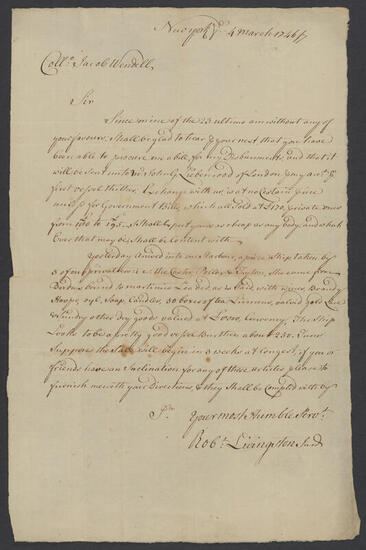 New york 4 March 1746/7
Collo. Jacob Wendell
Sir
Since mine of the 23 ultimo am without any of
your favours, Shall be glad to hear your next that you have
been able to procure me a bill, for my Disbursments, and that it
will be sent unto of London
first vessel thither, Exchange with us, is at no Certain price
and for Government Bills, which are Sold at £190, private ones
from 180 to 185, I Shall expect yours as cheap as any body, and what
Ever that may be Shall be Content with.
Yesterday Arrived into our Harbour, a prize Ship taken by
3 of our privateers She came from
bound to martineco Leaded as is Said with wines, Brandy
Hoops, oyl, Soap, Candles, 30 boxes of Linnens, Gold Lace
& Sundry other dry goods valued at The Ship
Looks to be a pretty good vessel Burthen about 250 Tuns
Suppose the Sale will begin in 3 weeks at Longest, if you or
friends have an Inclination for any of these articles please to
furnish me with your Directions, & they Shall be Complied with by
Sir
Your most Humble Servt.
Robt. Livingston Junr